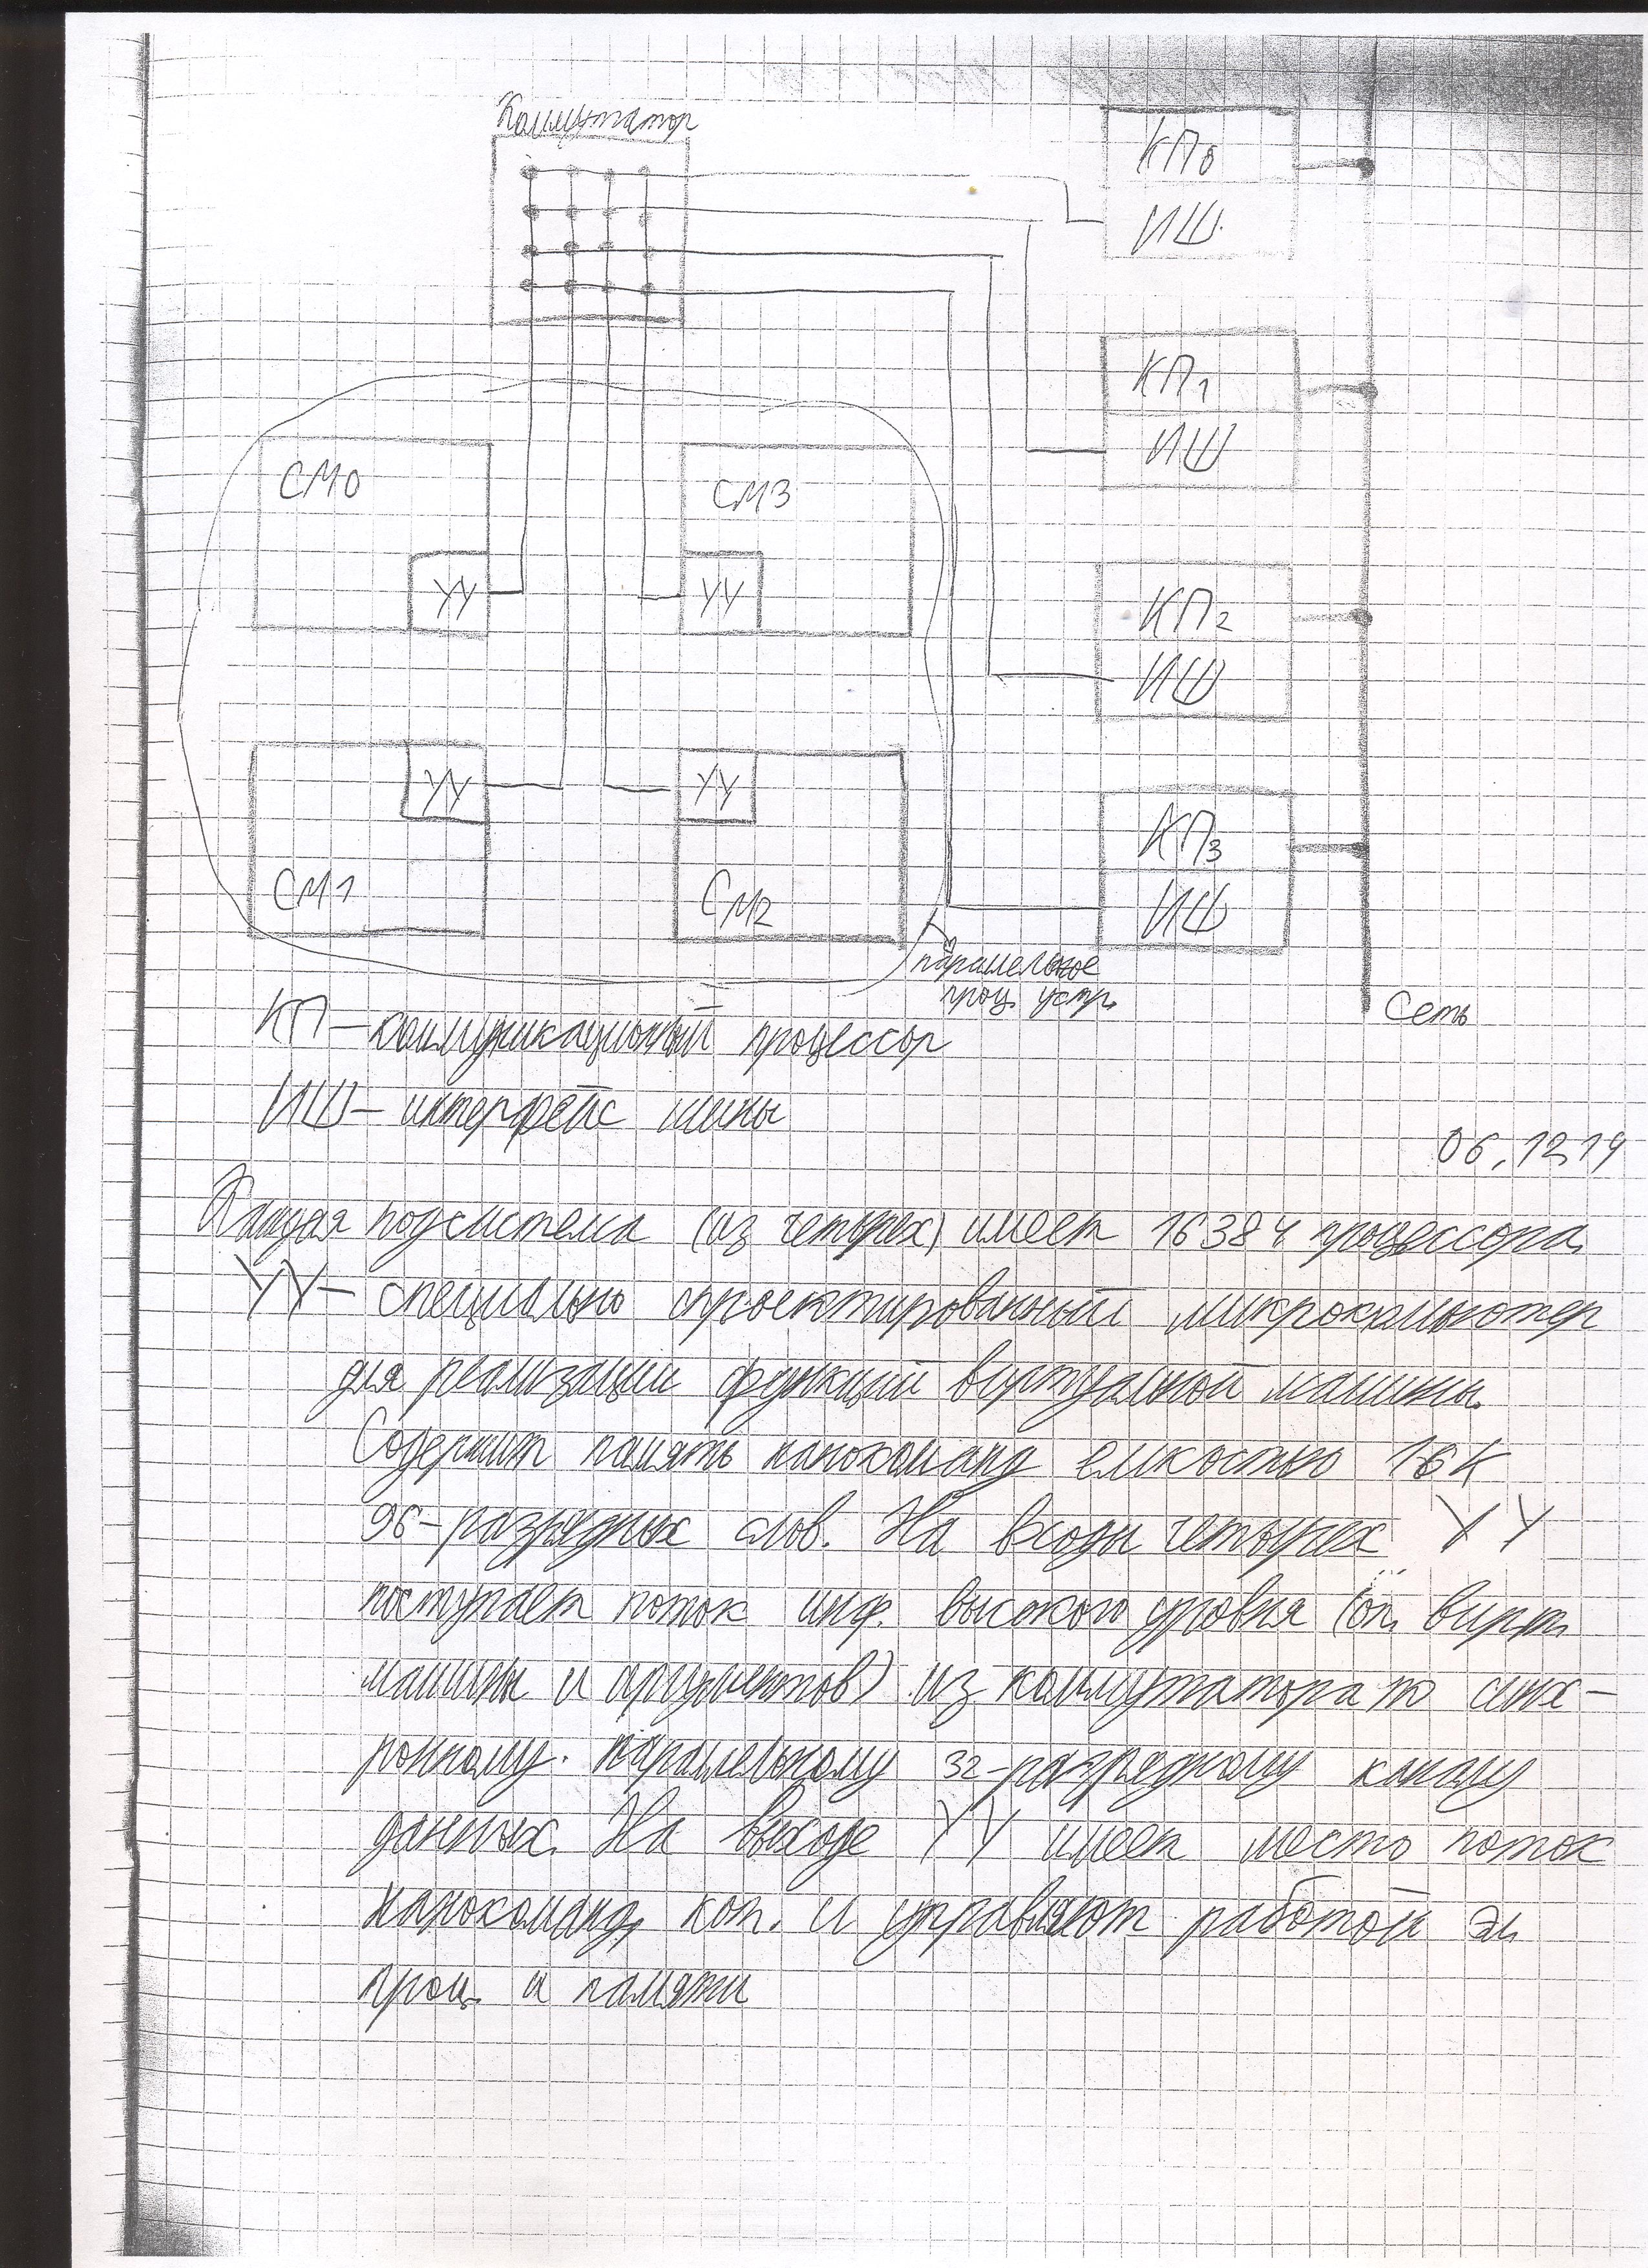 Коммутатор
КП0
ИШ
КП1
ИШ
СМ0
СМ3
УУ
УУ
КП2
ИШ
УУ
УУ
КП3
СМ1
СМ2
ИШ
параллельное
проц. устр.
Сеть
КП – коммуникационный процессор
ИШ – интерфейс шины
06.12.14
Каждая подсистема (из четырех) имеет 16384 процессора.
УУ – специально спроектированный микрокомпьютер
для реализации функций виртуальной машины.
Содержит память нанокоманд емкостью 16К
96-разрядных слов. На входы четырех УУ
поступает поток инф. высокого уровня (оп. вирт.
машины и аргументов) из коммутатора по синх-
ронному параллельному 32-разрядному каналу
данных. На выходе УУ имеет место поток
нанокоманд, кот. и управляют работой эл.
проц. и памяти